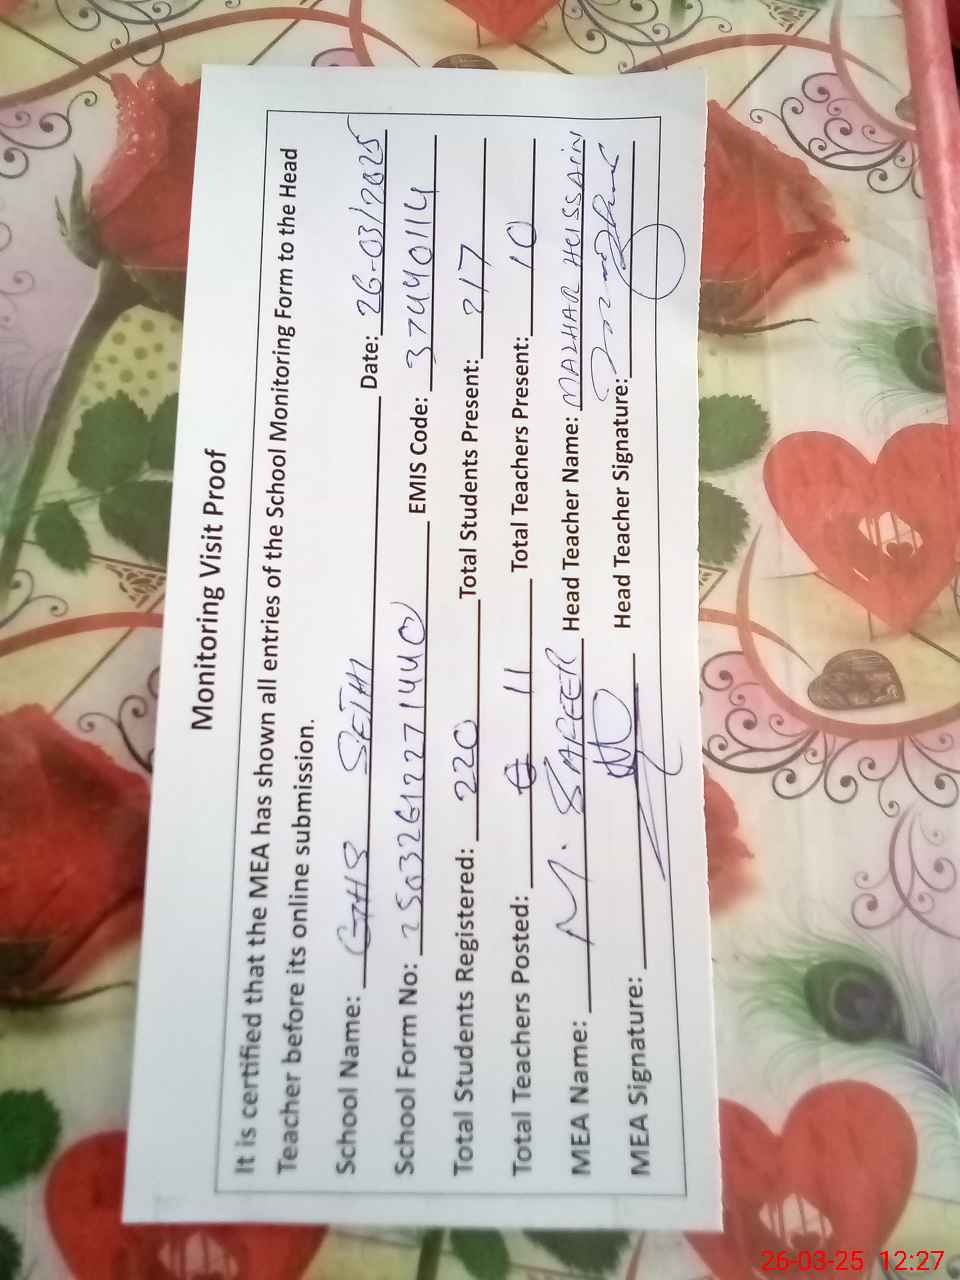 Monitoring Visit Proof
It is certified that the MEA has shown all entries of the School Monitoring Form to the Head
Teacher before its online submission.
School Name: GHS SETHI Date: 26-03/2025
School Form No: 25032612271440 EMIS Code: 37440114
Total Students Registered: 220 Total Students Present: 217
Total Teachers Posted: 11 Total Teachers Present: 10
MEA Name: M. SAFEER Head Teacher Name: MAZHAR HUSSAIN
MEA Signature: Head Teacher Signature:
26-03-25 12:27